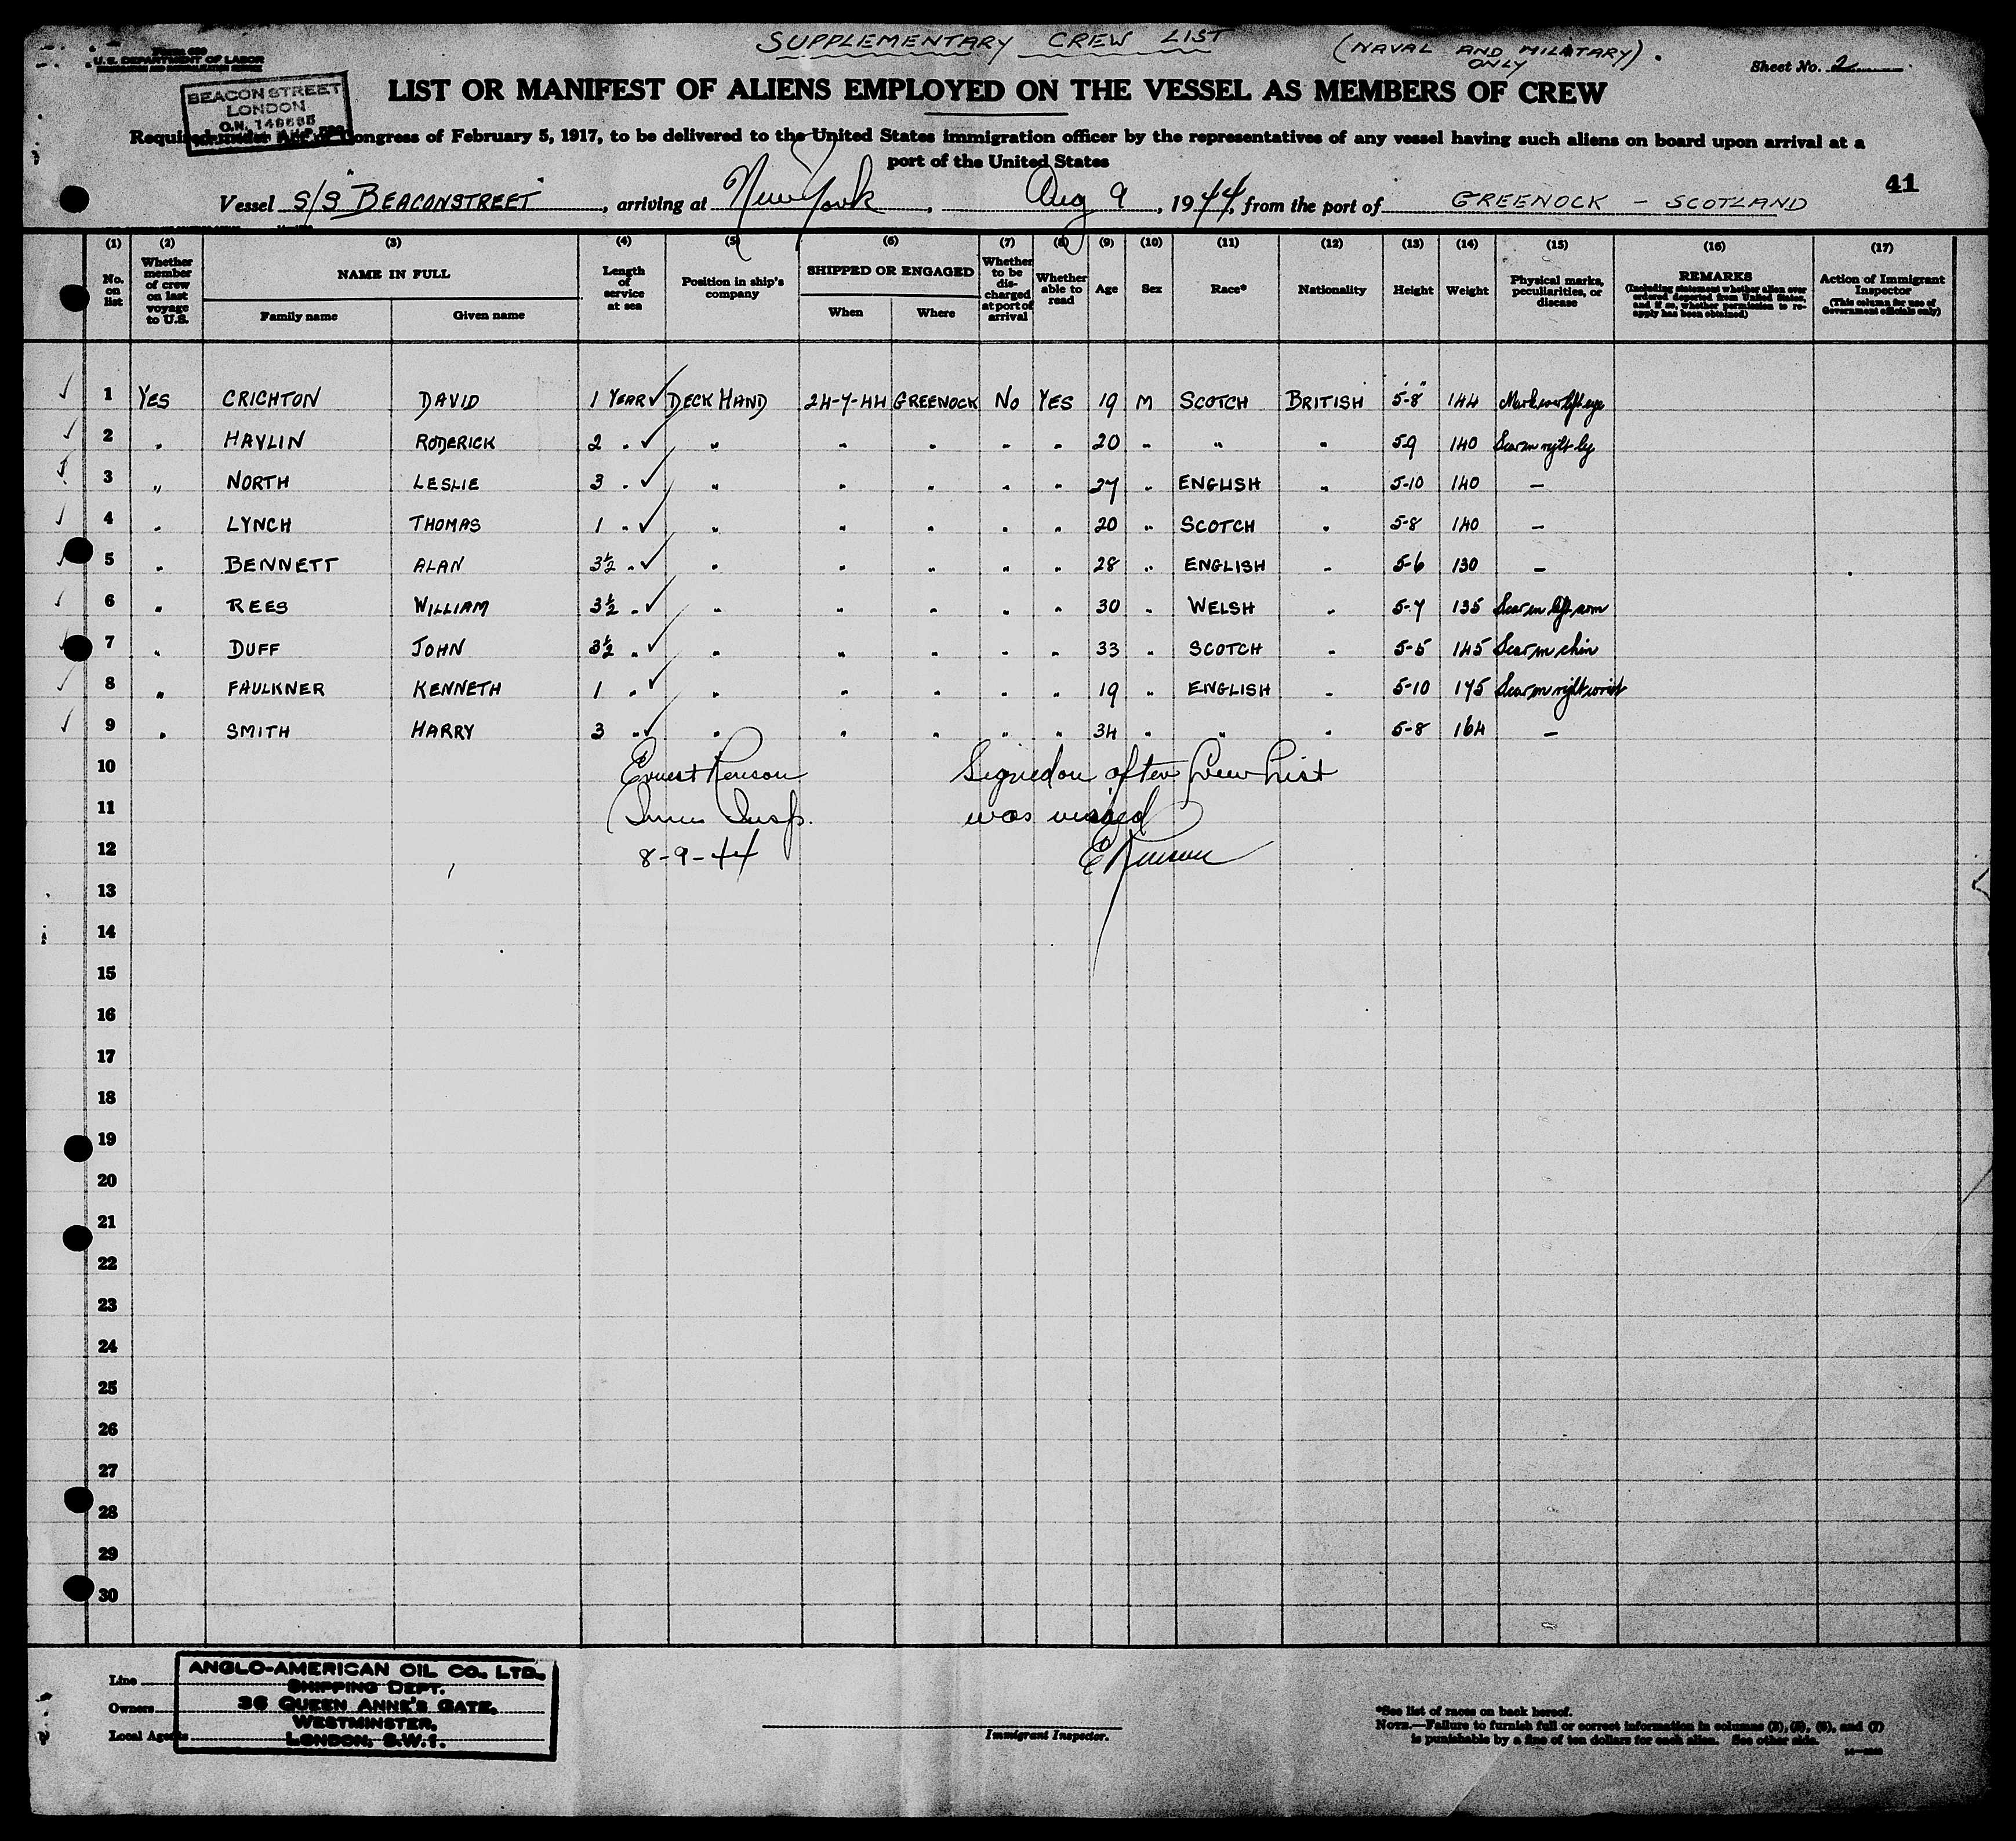 SUPPLEMENTARY CREW LIST (NAVAL AND MILITARY) ONLY.
U.S. DEPARTMENT OF LABOR
Sheet No. 2
BEACON STREET
LONDON
O.N. 149695
LIST OR MANIFEST OF ALIENS EMPLOYED ON THE VESSEL AS MEMBERS OF CREW
Required under Act of Congress of February 5, 1917, to be delivered to the United States immigration officer by the representatives of any vessel having such aliens on board upon arrival at a
port of the United States
41
Vessel S/S "BEACONSTREET", arriving at New York, Aug 9, 1944, from the port of GREENOCK - SCOTLAND
(1) (2) (3) (4) (5) (6) (7) (8) (9) (10) (11) (12) (13) (14) (15) (16) (17)
No. on list
Whether member of crew on last voyage to U.S.
NAME IN FULL
Family name Given name
Length of service at sea
Position in ship's company
SHIPPED OR ENGAGED
When Where
Whether to be discharged at port of arrival
Whether able to read
Age Sex Race* Nationality Height Weight
Physical marks, peculiarities, or disease
REMARKS
(Including statement whether alien ever ordered deported from United States, and if so, whether permission to reapply has been obtained)
Action of Immigrant Inspector
(This column for use of Government officials only)
1 YES CRICHTON DAVID 1 YEAR ✓ DECK HAND 24-7-44 GREENOCK NO YES 19 M SCOTCH BRITISH 5'-8" 144 Mark over left eye
2 " HAVLIN RODERICK 2 " ✓ " " " " " 20 " " " 5-9 140 Scar on right leg
3 " NORTH LESLIE 3 " ✓ " " " " " 27 " ENGLISH " 5-10 140 -
4 " LYNCH THOMAS 1 " ✓ " " " " " 20 " SCOTCH " 5-8 140 -
5 " BENNETT ALAN 3½ " ✓ " " " " " 28 " ENGLISH " 5-6 130 -
6 " REES WILLIAM 3½ " ✓ " " " " " 30 " WELSH " 5-7 135 Scar on left arm
7 " DUFF JOHN 3½ " ✓ " " " " " 33 " SCOTCH " 5-5 145 Scar on chin
8 " FAULKNER KENNETH 1 " ✓ " " " " " 19 " ENGLISH " 5-10 175 Scar on right wrist
9 " SMITH HARRY 3 " ✓ " " " " " 34 " " " 5-8 164 -
10 Ernest Renson Signed on after Crew List
11 Imm Insp. was visaed
12 8-9-44 E Renson
13
14
15
16
17
18
19
20
21
22
23
24
25
26
27
28
29
30
Line
Owners
Local Agents
ANGLO-AMERICAN OIL CO., LTD.,
SHIPPING DEPT.
36 QUEEN ANNE'S GATE,
WESTMINSTER,
LONDON, S.W.1.
Immigrant Inspector.
*See list of races on back hereof.
NOTE.—Failure to furnish full or correct information in columns (3), (5), (6), and (7)
is punishable by a fine of ten dollars for each alien. See other side.